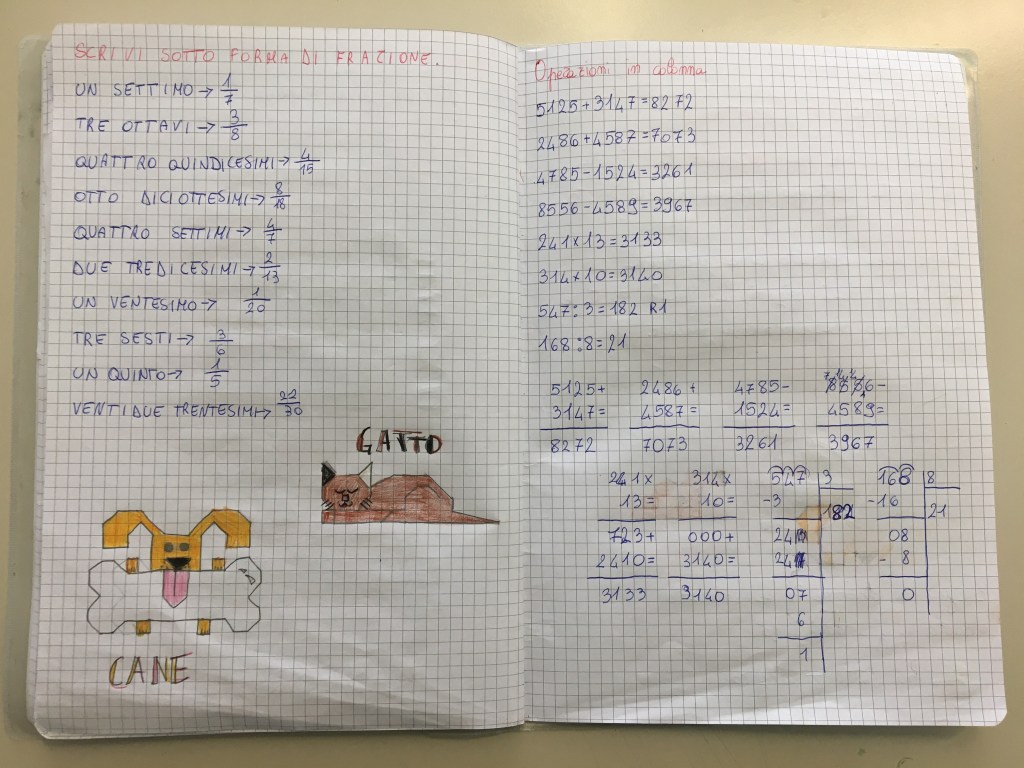 SCRIVI SOTTO FORMA DI FRAZIONE.
UN SETTIMO → 1/7
TRE OTTAVI → 3/8
QUATTRO QUINDICESIMI → 4/15
OTTO DICIOTTESIMI → 8/18
QUATTRO SETTIMI → 4/7
DUE TREDICESIMI → 2/13
UN VENTESIMO → 1/20
TRE SESTI → 3/6
UN QUINTO → 1/5
VENTIDUE TRENTESIMI → 22/30
GATTO
CANE
Operazioni in colonna
5125+3147=8272
2486+4587=7073
4785-1524=3261
8556-4589=3967
241x13=3133
314x10=3140
547:3=182 R1
168:8=21
5125+ 2486+ 4785- 8556-
3147= 4587= 1524= 4589=
8272 7073 3261 3967
241x 314x 547 3 168 8
13= 10= -3 182 -16 21
723+ 000+ 24 08
2410= 3140= 24 - 8
3133 3140 07 0
6
1